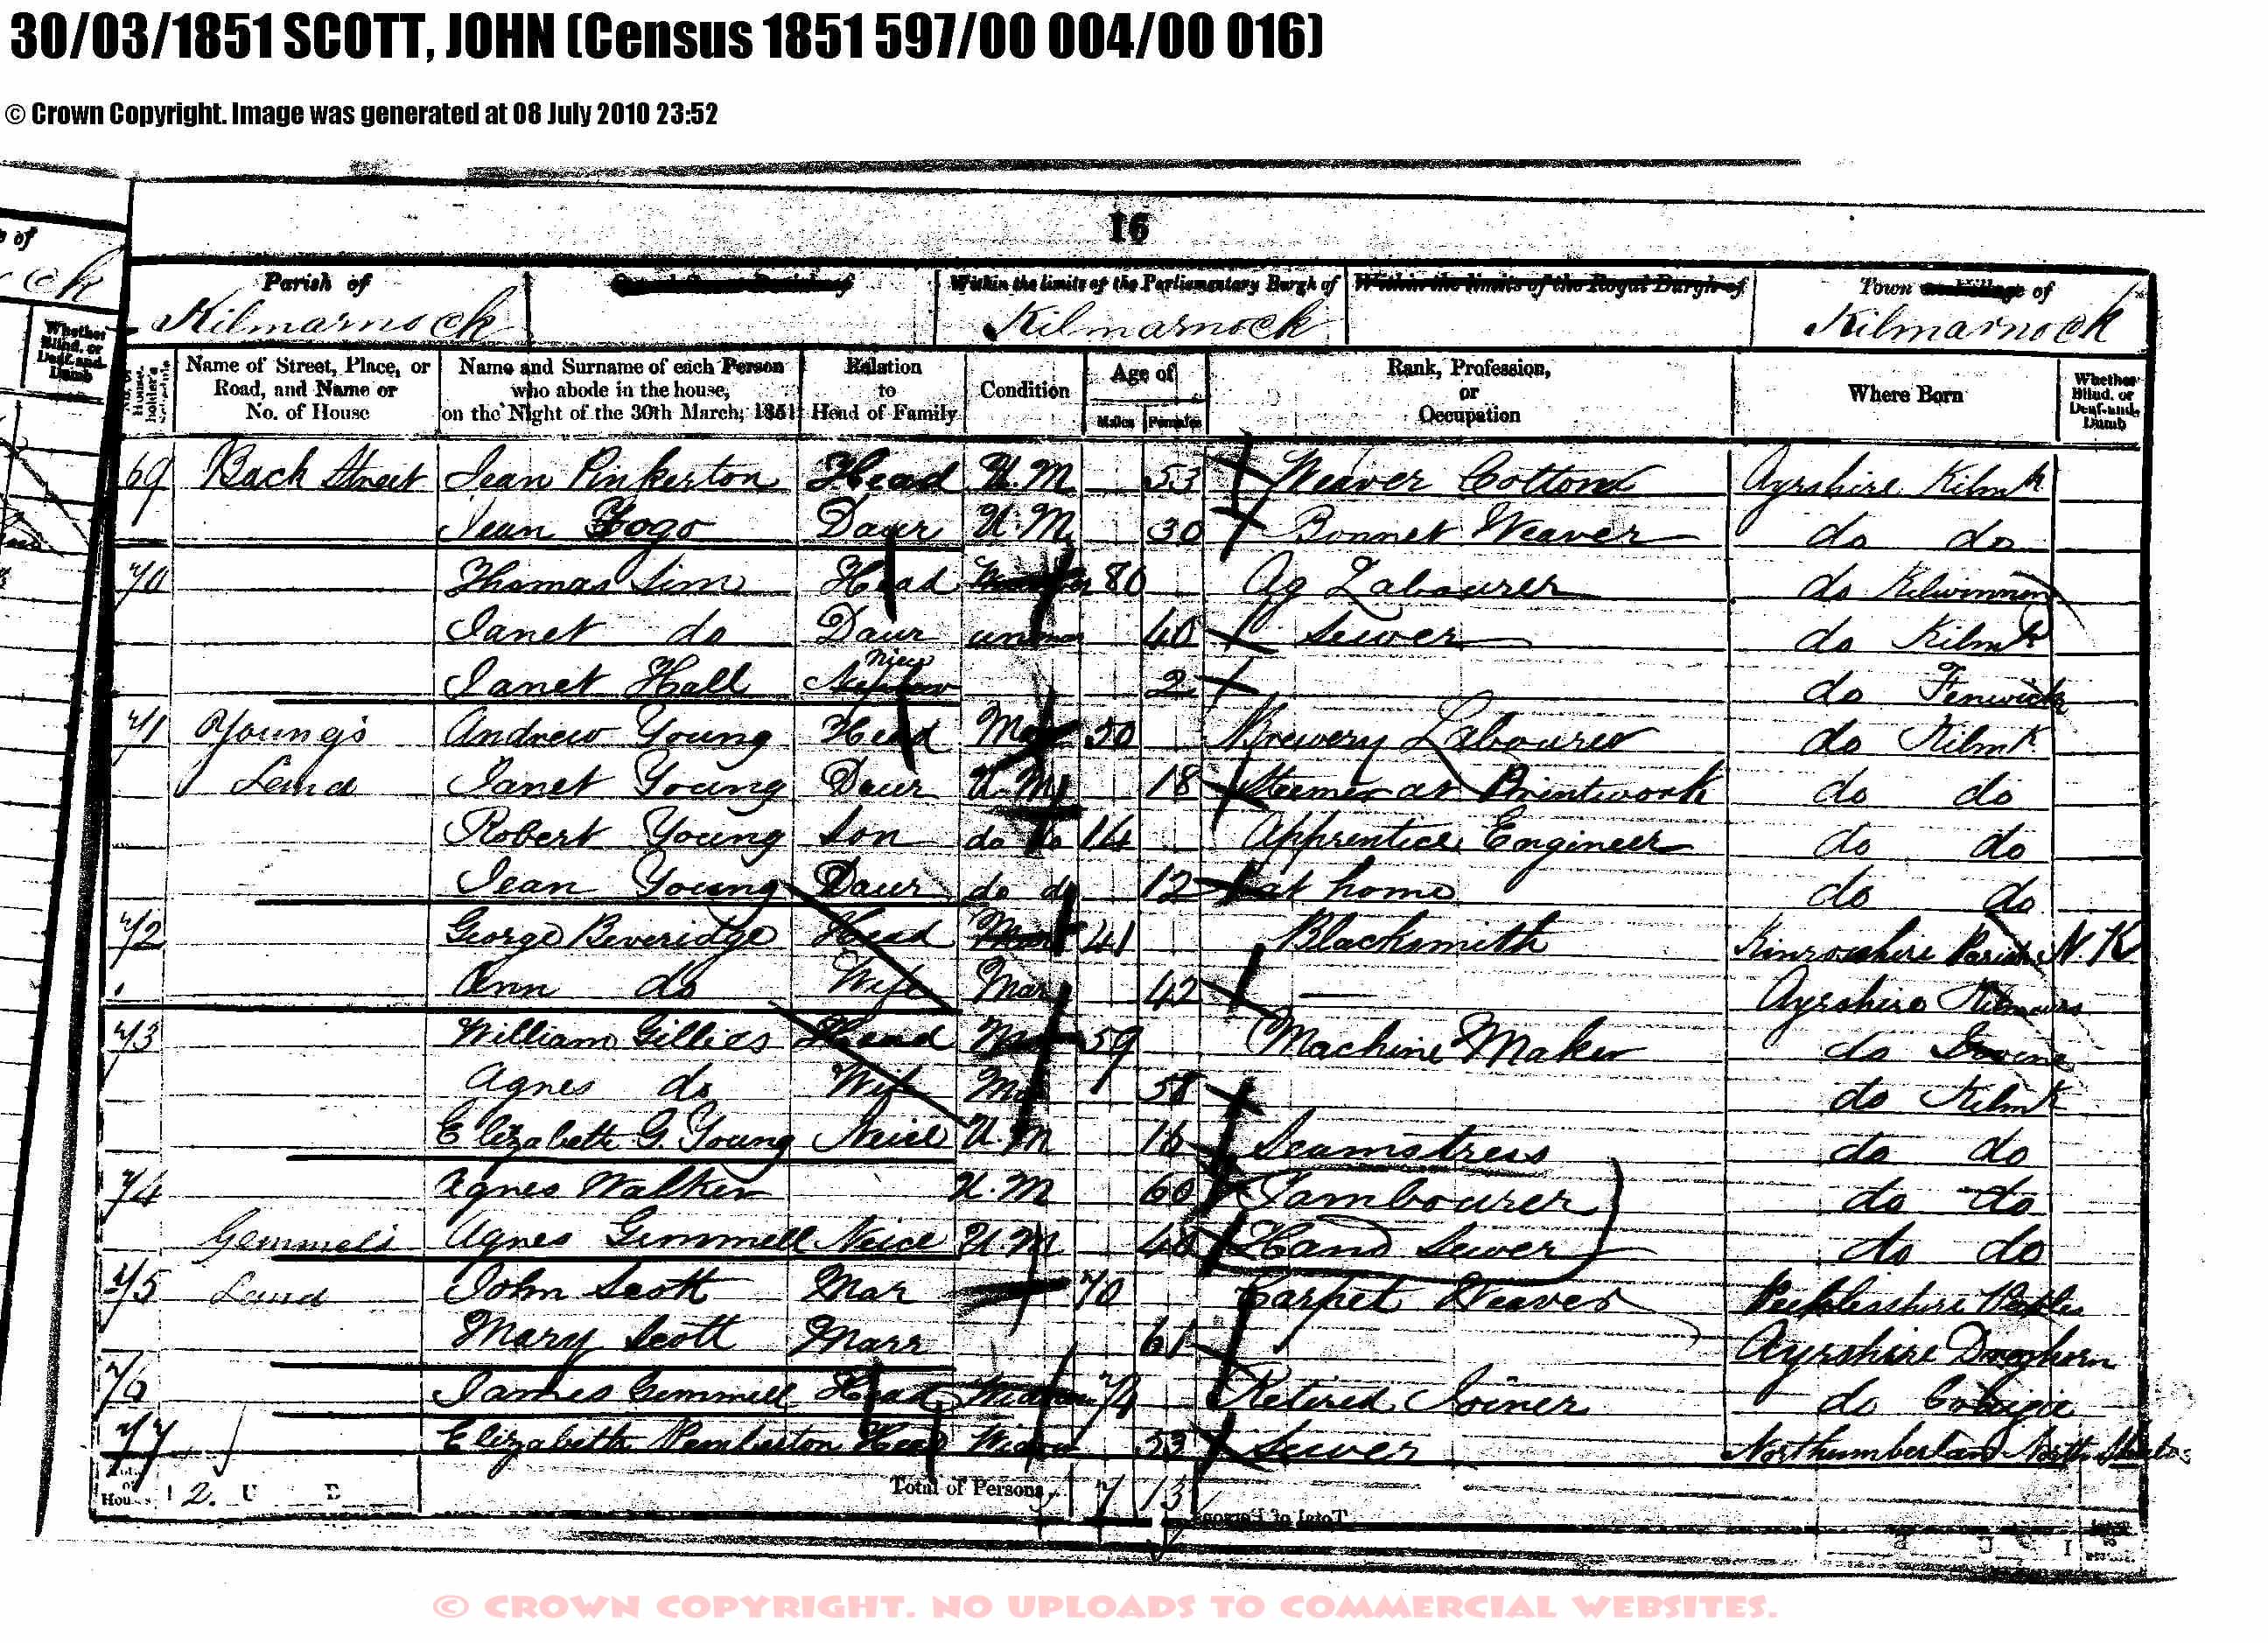 30/03/1851 SCOTT, JOHN (Census 1851 597/00 004/00 016)
© Crown Copyright. Image was generated at 08 July 2010 23:52
16
Parish of Within the limits of the Parliamentary Burgh of Within the limits of the Royal Burgh of Town of
Kilmarnock Kilmarnock Kilmarnock
Name of Street, Place, or Road, and Name or No. of House Name and Surname of each Person who abode in the house, on the Night of the 30th March, 1851 Relation to Head of Family Condition Age of Males Females Rank, Profession, or Occupation Where Born Whether Blind, or Deaf-and-Dumb
69 Back Street Jean Pinkerton Head U.M 53 Weaver Cotton Ayrshire Kilmk
Jean Fogo Daur U.M 30 Bonnet Weaver do do
70 Thomas Sim Head 80 Ag Labourer do Kilwinning
Janet do Daur unmar 40 Sewer do Kilmk
Janet Hall Niece 2 do Fenwick
71 Young's Andrew Young Head Mar 50 Brewery Labourer do Kilmk
Land Janet Young Daur U.M 18 Steamer at Printwork do do
Robert Young Son do do 14 Apprentice Engineer do do
Jean Young Daur do do 12 at home do do
72 George Beveridge Head Mar 41 Blacksmith Kinrosshire Parish N.K
Ann do Wife Mar 42 — Ayrshire Kilmaurs
73 William Gillies Head 59 Machine Maker do Irvine
Agnes do Wife Mar 58 do Kilmk
Elizabeth G. Young Neice U.M 16 Seamstress do do
74 Agnes Walker U.M 60 Tambourer do do
Gemmel's Agnes Gemmell Neice U.M 40 Hand Sewer do do
75 Land John Scott Mar 70 Carpet Weaver Peeblesshire Peebles
Mary Scott Marr 61 Ayrshire Dreghorn
76 James Gemmell Head 74 Retired Joiner do
77 Elizabeth Pemberton Head Widow 53 Sewer Northumberland North Shields
12. U B Total of Persons 7 13
© CROWN COPYRIGHT. NO UPLOADS TO COMMERCIAL WEBSITES.